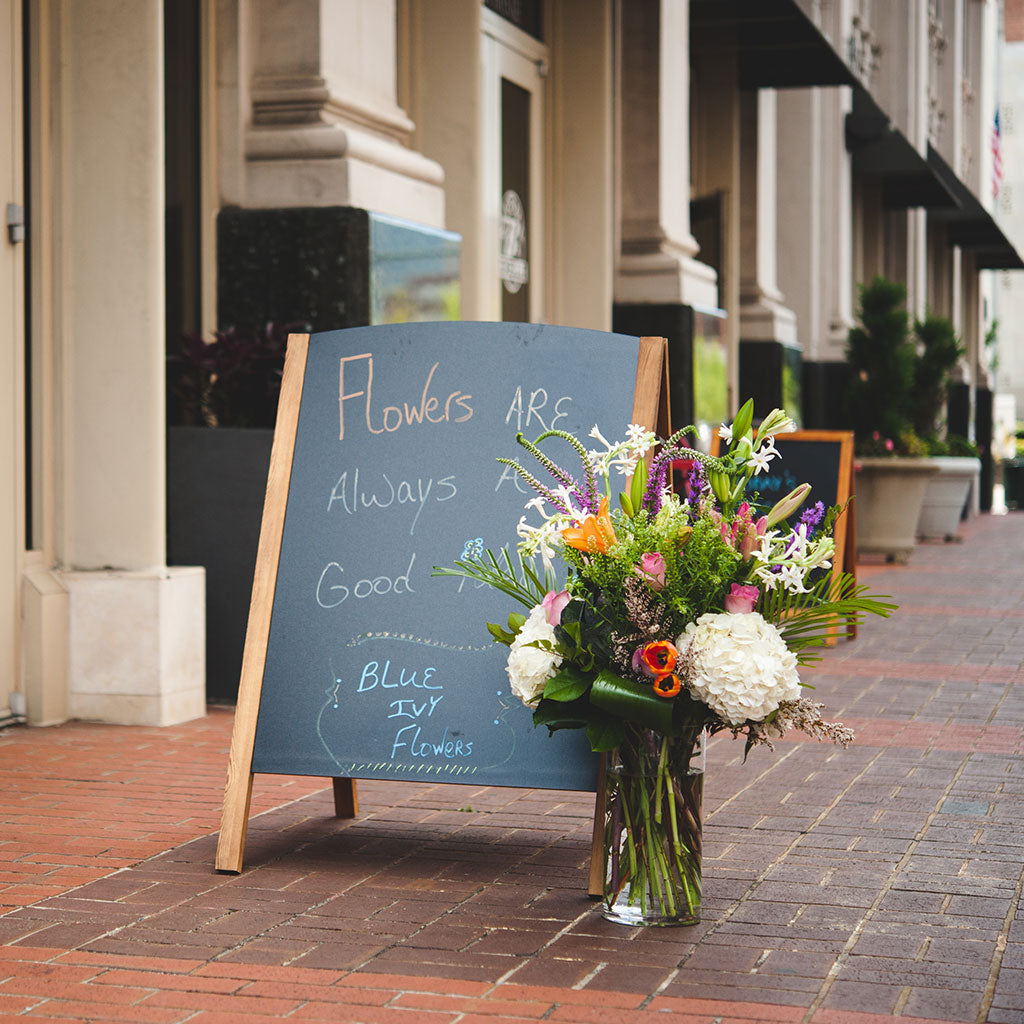 Flowers ARE
Always A
Good
BLUE
IVY
Flowers